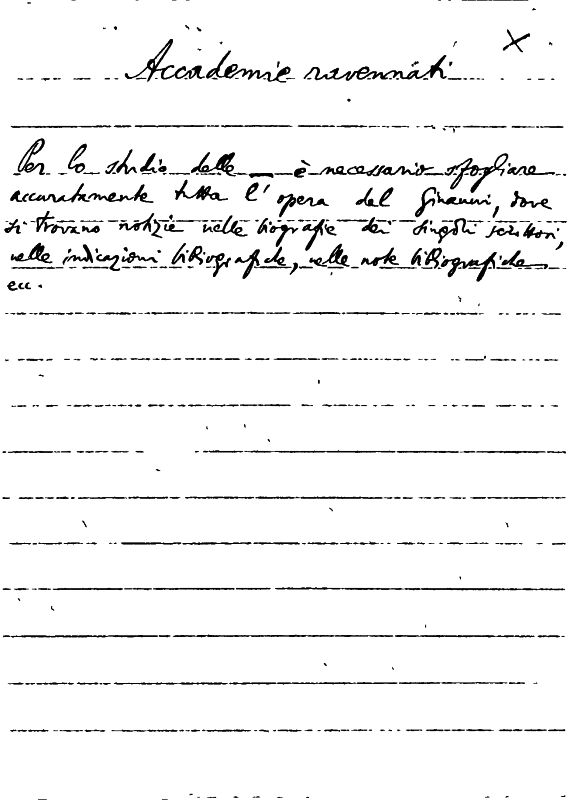 Accademie ravennati
Per lo studio delle — è necessario sfogliare
accuratamente tutta l'opera del Ginanni, dove
si trovano notizie nelle biografie dei singoli scrittori,
nelle indicazioni bibliografiche, nelle note bibliografiche
ecc.